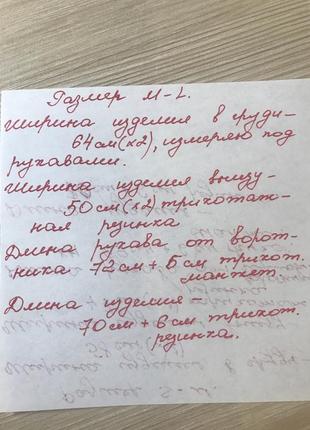 Размер M-L.
Ширина изделия в груди-
64 см (х2), измеряю под
рукавами.
Ширина изделия внизу-
50 см (х2) трикотаж-
ная резинка
Длина рукава от ворот-
ника - 72 см + 5 см трикот.
манжет
Длина изделия -
70 см + 6 см трикот.
резинка.